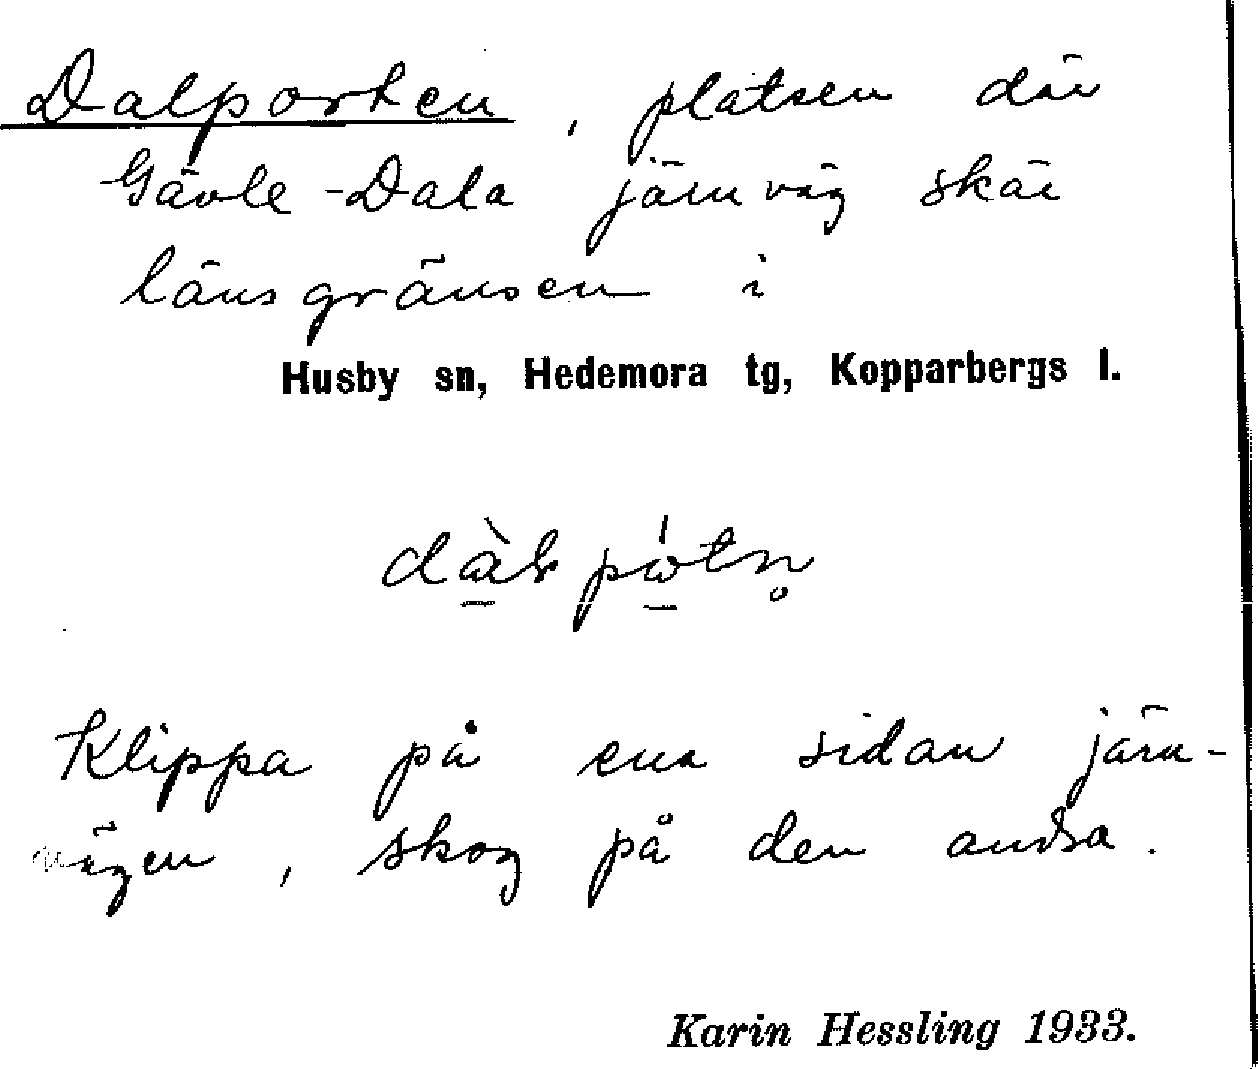 Dalporten, platsen där
Gävle-Dala järnväg skär
länsgränsen i
Husby sn, Hedemora tg, Kopparbergs l.
Klippa på ena sidan järn-
vägen, skog på den andra.
Karin Hessling 1933.